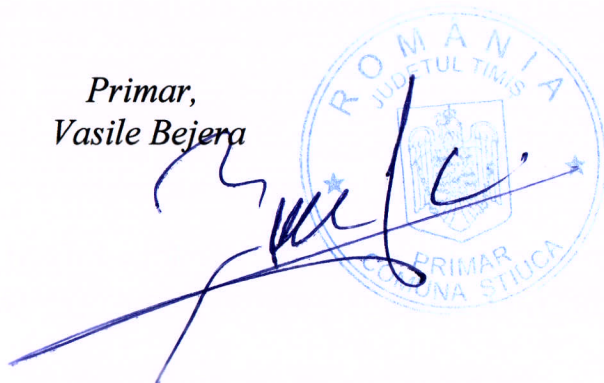 Primar,
Vasile Bejera
ROMÂNIA
JUDETUL TIMIS
PRIMAR
COMUNA STIUCA